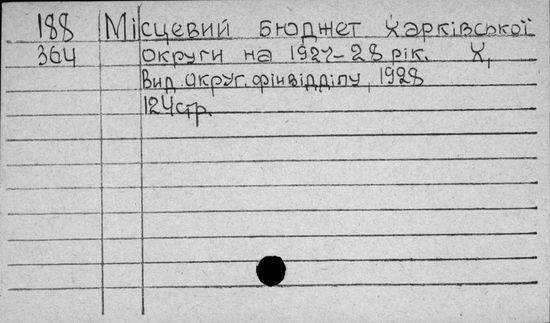 188 Місцевий бюджет Харківської
364 округи на 1927-28 рік. Х,
Вид. округ. фінвідділу, 1928
124стр.